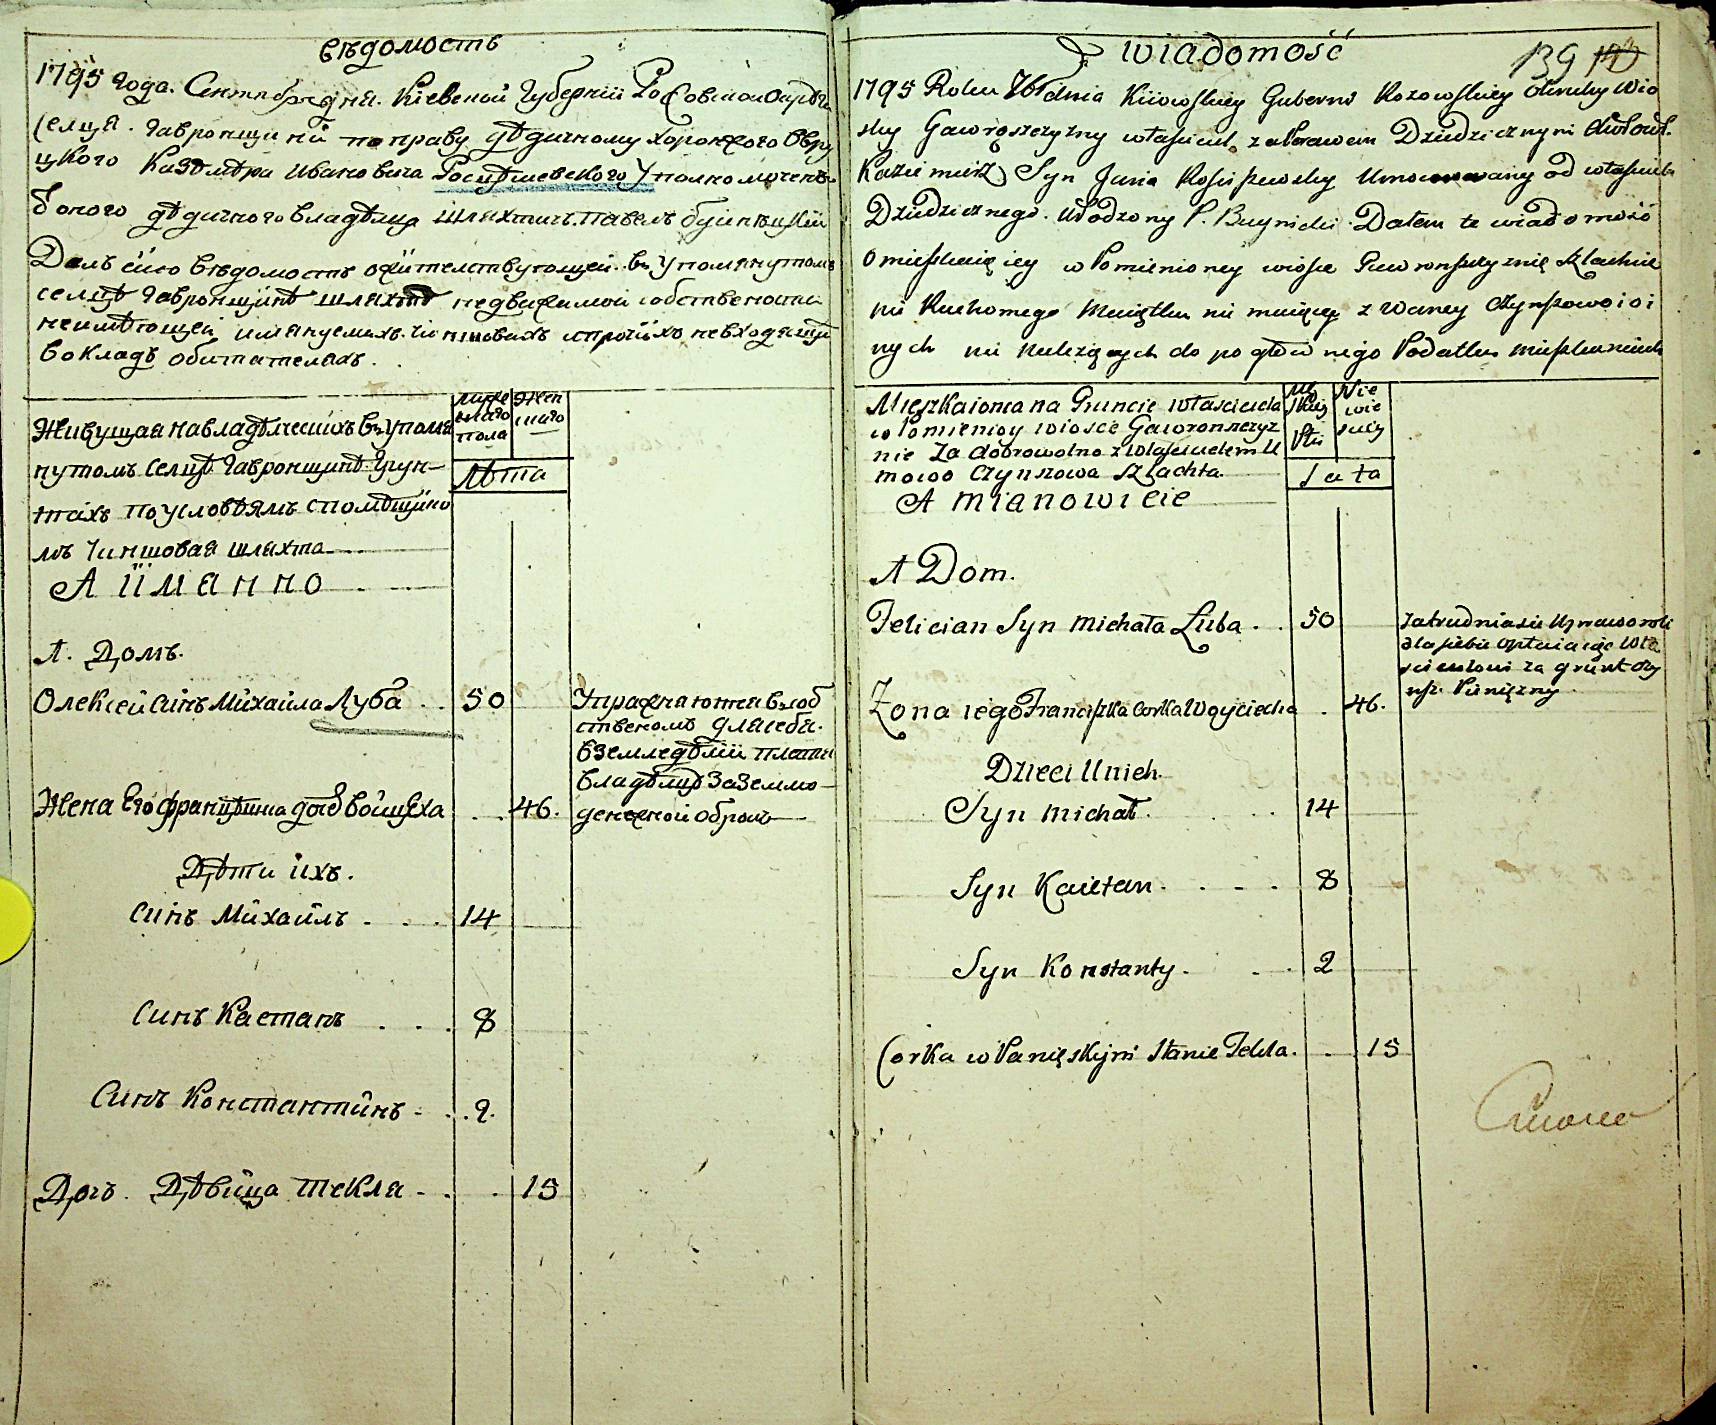 вѣдомость
1795 года. Сентября дня. Киевской Губернïи
селца. Гавронщини по праву дѣдичному хоронжого Овру
цкого Казымѣра Ивановича Росцѣшевского Уполномоченъ
дѣдичного владѣлца шляхтичъ Павелъ Буйницкïй
Далъ сïю вѣдомость о жителствующей въ Упомянутомъ
селцѣ Гавронщинѣ шляхтѣ недвижимой собствености
неимѣющей имянуемихъ Чиншовихъ и протчïхъ невходящи
в окладъ обитателяхъ.
муже
ского
пола
жен
ского
Живущая на владѣлческихъ въ упомя
нутомъ селцѣ Гавронщинѣ Грун-
тахъ по условïямъ с помѣщико
мъ Чиншовая шляхта
Лѣта
А ïи м а н н о
А. Домъ.
Олексей Синъ Мïхайла Луба . . 50
Упражняются в соб
ственомъ для себя.
в земледѣлïи платя
владѣлцу за землю
денежной оброкъ
Жена Его Францѣшка дочь Войцеха . . 46.
Дѣти ихъ.
Синъ Мïхайлъ . . . 14
Синъ Каетанъ . . . 8
Синъ Константинъ - . . 2.
Дочь. Дѣвица Текля - . . 15
wiadomość
139
1795 Roku 7bra dnia Kiiowskiey Guberni Okruhu Wio
ski Gawroszczyzny własciciel za Prawem Dziedzicznym
Kazimierz Syn Jana Rosciszewsky Umocowany od własciciela
Dziedzicznego. Urodzony P. Buynicki Dałem te wiadomość
o mieszkaiącey w Pomienioney wiosce Gawronszczyznie Szlachcie
nie Ruchomego Maiątku nie maiącey z waney Czynszowo i i
nych nie należących do pogłównego Podatku mieszkancach
Mieszkaiąca na Gruncie własciciela
w Pomienioy wiosce Gawronszczyz
nie Za dobrowolno z własicielem U
mowo Czynszowa Szlachta.
Mę
skiey
Płci
Nie
wie
sciey
Lata
A mianowicie
A Dom.
Felician Syn Michała Luba . . 50
Zatrudnia sie Uprawo roli
dla siebie opłaciaiąc wła
scicielowi za grunt czy
nsz Pieniężny
Zona iego Franciszka Corka Woyciecha . 46.
Dzieci Unich
Syn Michał . . . . 14
Syn Kaietan . . - . 8
Syn Konstanty . . . 2
Corka w Panięskym Stanie Tekla. . . 15